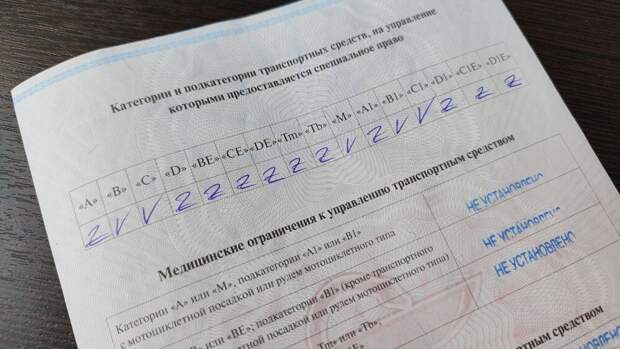 Категории и подкатегории транспортных средств, на управление
которыми предоставляется специальное право
«A» «B» «C» «D» «BE» «CE» «DE» «Tm» «Tb» «M» «A1» «B1» «C1» «D1» «C1E» «D1E»
Z V V Z Z Z Z Z Z V Z V V Z Z Z
Медицинские ограничения к управлению транспортным средством
Категории «A» или «M», подкатегории «A1» или «B1»
с мотоциклетной посадкой или рулем мотоциклетного типа
НЕ УСТАНОВЛЕНО
«B» или «BE», подкатегории «B1» (кроме транспортного
мотоциклетной посадкой или рулем мотоциклетного типа)
НЕ УСТАНОВЛЕНО
«Tm» или «Tb»,
НЕ УСТАНОВЛЕНО
транспортным средством